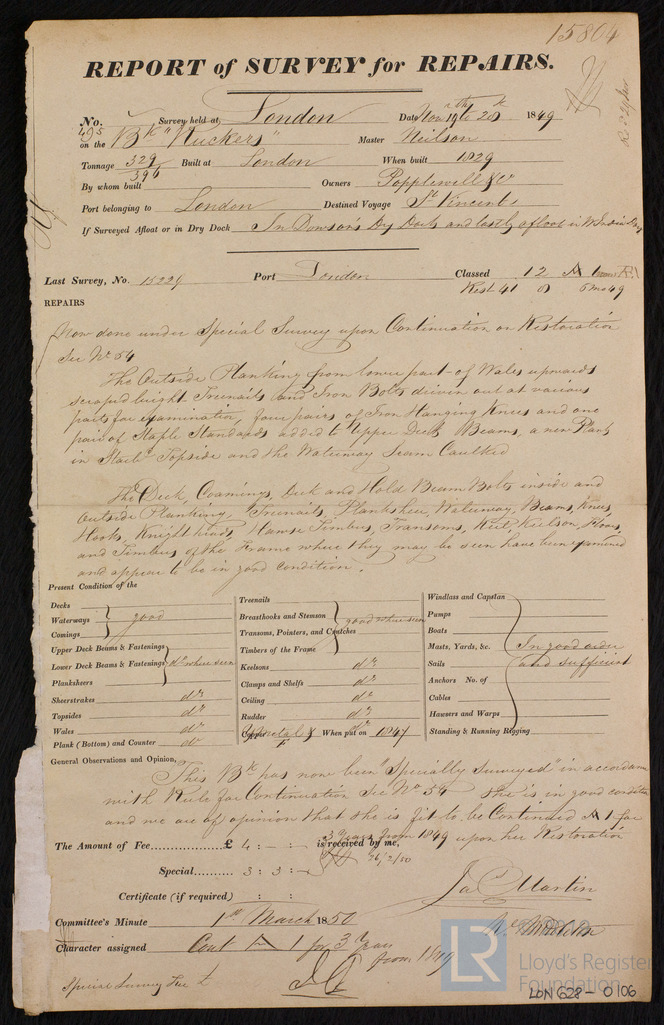 15864
REPORT of SURVEY for REPAIRS.
No. 495 Survey held at London Date Nov 19th to 28th 1849
on the Bk "Ruckers" Master Neilson
Tonnage 329 / 396 Built at London When built 1829
By whom built Owners Popplewell & Co
Port belonging to London Destined Voyage St Vincents
If Surveyed Afloat or in Dry Dock In Dowson's Dry Dock and lastly afloat in W India Dock
Last Survey, No. 15229 Port London Classed 12 A 1
Rest. 41 8 6 mo 49
REPAIRS
Now done under Special Survey upon Continuation on Restoration
Sec No 54
The Outside Planking from lower part of Wales upwards
scraped bright Treenails and Iron Bolts driven out at various
parts for examination, four pairs of Iron Hanging Knees and one
pair of Staple Standards added to Upper Deck Beams, a new Plank
in Starbd Topside and the Waterway Seam Caulked
The Deck, Coamings, Deck and Hold Beam Bolts inside and
Outside Planking, Treenails, Planksheer, Waterway, Beams, Knees,
Hooks, Knightheads, Hawse Timbers, Transoms, Keel, Keelson, Floors,
and Timbers of the Frame where they may be seen have been examined
and appear to be in good condition.
Present Condition of the
Decks
Waterways good
Comings
Upper Deck Beams & Fastenings
Lower Deck Beams & Fastenings do where seen
Planksheers
Sheerstrakes do
Topsides do
Wales do
Plank (Bottom) and Counter do
Treenails
Breasthooks and Stemson good where seen
Transoms, Pointers, and Crutches
Timbers of the Frame
Keelsons do
Clamps and Shelfs do
Ceiling do
Rudder do
Copper When put on 1847
Windlass and Capstan
Pumps
Boats
Masts, Yards, &c. In good order
Sails and sufficient
Anchors No. of
Cables
Hawsers and Warps
Standing & Running Rigging
General Observations and Opinion,
This Bk has now been "Specially Surveyed" in accordance
with Rule for Continuation Sec No 54 She is in good condition
and we are of opinion that she is fit to be Continued A 1 for
3 Years from 1849 upon her Restoration
The Amount of Fee £ 4 : - : - is received by me,
26/2/50
Special 3 : 3 : -
Certificate (if required) : :
Jas Martin
Committee's Minute 1st March 1850
Character assigned Cont A 1 for 3 Years
from 1849
Special Survey Fee £
LR
Lloyd's Register
Foundation
LON 628 - 0106